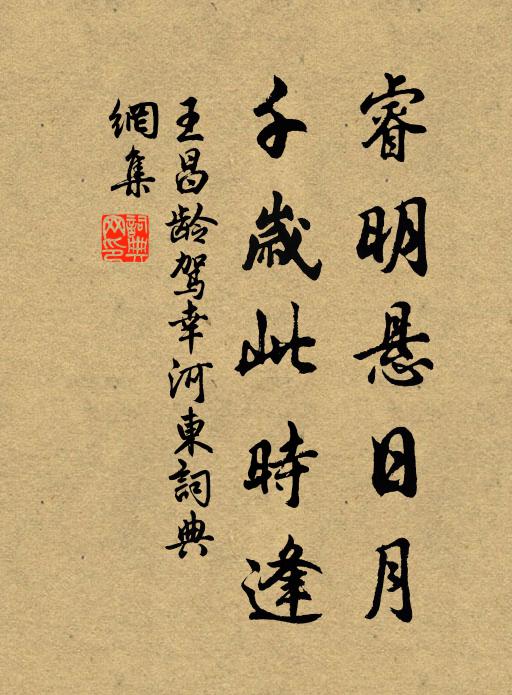 睿明悬日月
千歲此時逢
王昌龄駕幸河東詞典
網集
詞典
网印